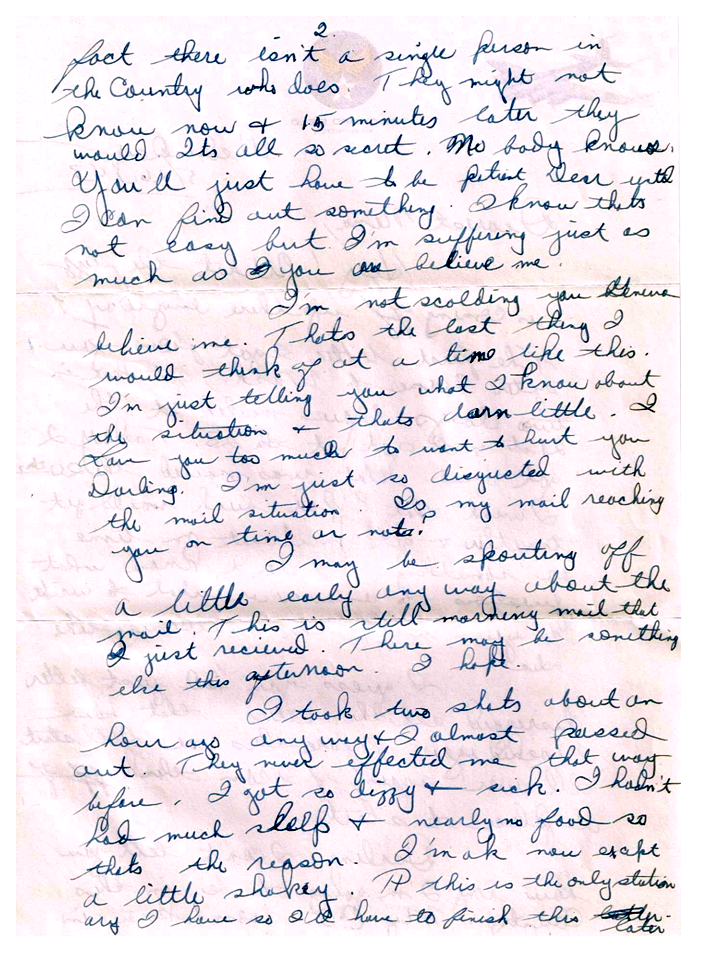 2.
fact there isn't a single person in
the Country who does. They might not
know now & 15 minutes later they
would Its all so secret. No body knows.
You'll just have to be patient Dear until
I can find out something. I know thats
not easy but I'm suffering just as
much as you are believe me.
I'm not scolding you Geneva
believe me. Thats the last thing I
would think of at a time like this.
I'm just telling you what I know about
the situation & thats darn little. I
Love you too much to want to hurt you
Darling. I'm just so disgusted with
the mail situation. Is my mail reaching
you on time or not?
I may be spouting off
a little early any way about the
mail. This is still morning mail that
I just recieved. There may be something
else this afternoon. I hope.
I took two shots about an
hour ago anyway & I almost passed
out. They never effected me that way
before. I got so dizzy & sick. I hadn't
had much sleep & nearly no food so
thats the reason. I'm ok now exept
a little shakey. this is the only station
ary I have so I'll have to finish this
later